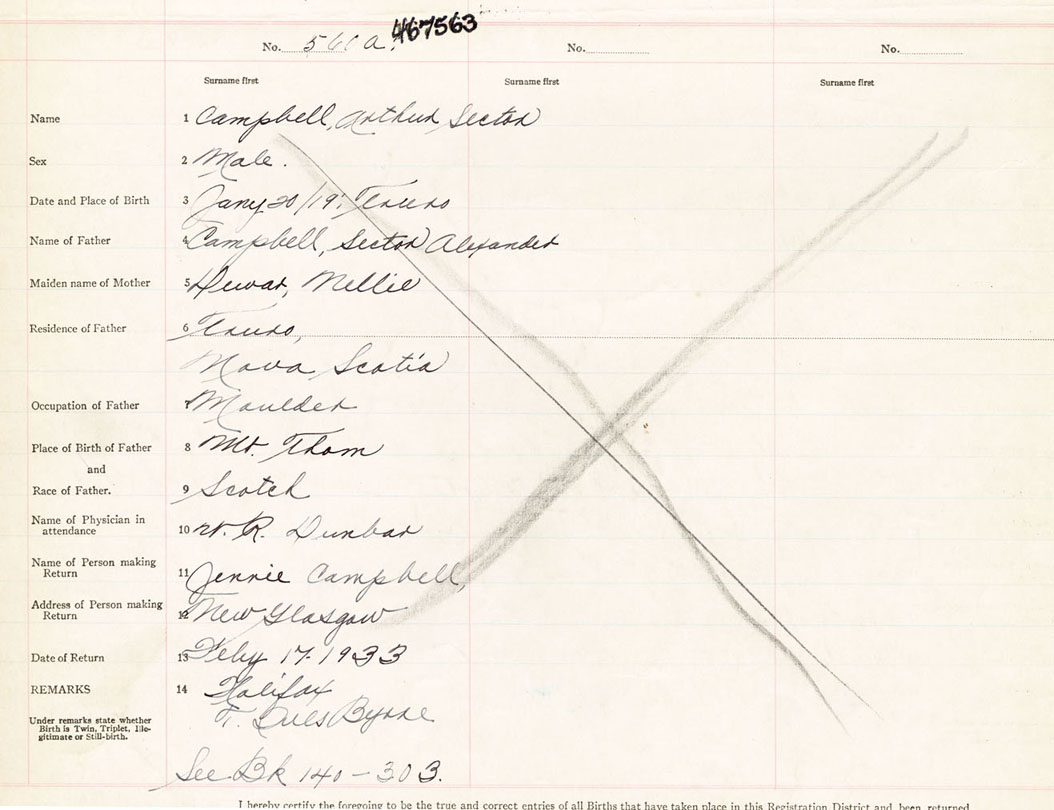 467563
No. 561 a. No. No.
Surname first Surname first Surname first
Name 1 Campbell, Arthur Sector
Sex 2 Male.
Date and Place of Birth 3 Jany 20/19 Truro
Name of Father 4 Campbell, Sector Alexander
Maiden name of Mother 5 Dewar, Nellie
Residence of Father 6 Truro,
Nova Scotia
Occupation of Father 7 Moulder
Place of Birth of Father 8 Mt. Thom
and
Race of Father. 9 Scotch
Name of Physician in
attendance 10 W. R. Dunbar
Name of Person making
Return 11 Jennie Campbell,
Address of Person making
Return 12 New Glasgow
Date of Return 13 Feby 17-1933
REMARKS 14 Halifax
Under remarks state whether
Birth is Twin, Triplet, Ille-
gitimate or Still-birth.
F. Byrne
See Bk 140-303.
I hereby certify the foregoing to be the true and correct entries of all Births that have taken place in this Registration District and been returned